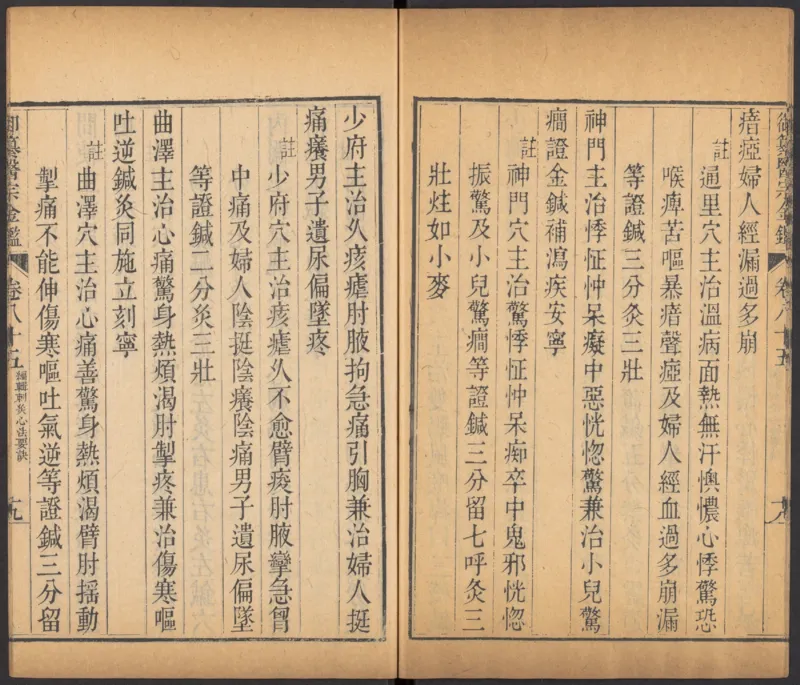 瘖瘂婦人經漏過多崩
註通里穴主治溫病面熱無汗懊憹心悸驚恐
喉痺苦嘔暴瘖聲瘂及婦人經血過多崩漏
等證鍼三分灸三壯
神門主治悸怔忡呆癡中惡恍惚驚兼治小兒驚
癎證金鍼補瀉疾安寧
註神門穴主治驚悸怔忡呆痴卒中鬼邪恍惚
振驚及小兒驚癎等證鍼三分留七呼灸三
壯炷如小麥
御纂醫宗金鑑 卷八十五 編輯刺灸心法要訣 十九
少府主治久痎瘧肘腋拘急痛引胸兼治婦人挺
痛癢男子遺尿偏墜疼
註少府穴主治痎瘧久不愈臂痠肘腋攣急胷
中痛及婦人陰挺陰癢陰痛男子遺尿偏墜
等證鍼二分灸三壯
曲澤主治心痛驚身熱煩渴肘掣疼兼治傷寒嘔
吐逆鍼灸同施立刻寧
註曲澤穴主治心痛善驚身熱煩渴臂肘搖動
掣痛不能伸傷寒嘔吐氣逆等證鍼三分留